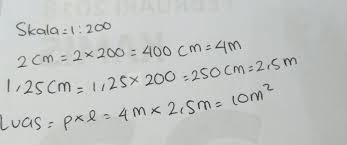 Skala = 1 : 200
2 cm = 2 × 200 = 400 cm = 4m
1,25 cm = 1,25 × 200 = 250 cm = 2,5 m
Luas = p×l = 4m × 2,5m = 10m²